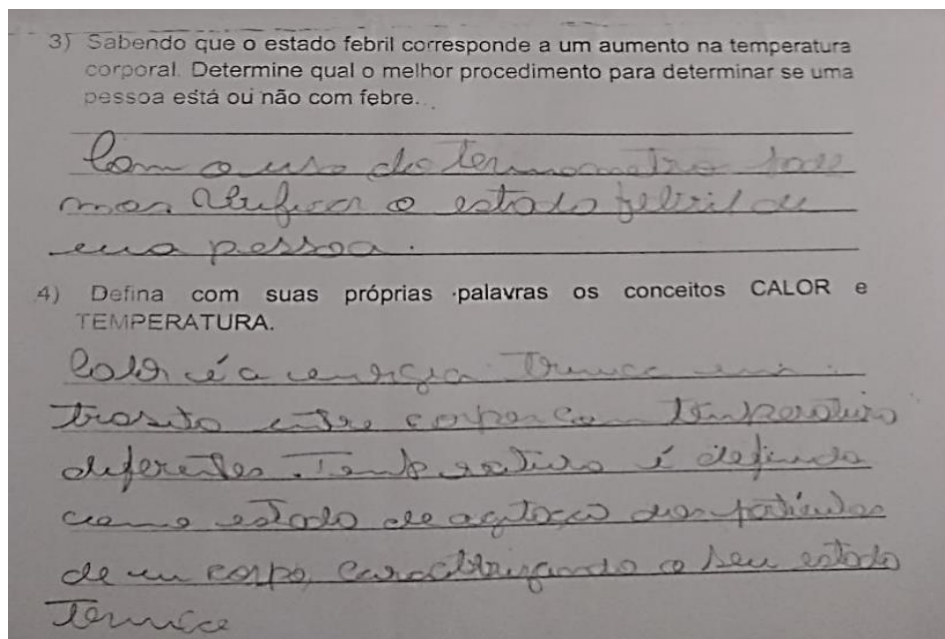 3) Sabendo que o estado febril corresponde a um aumento na temperatura
corporal. Determine qual o melhor procedimento para determinar se uma
pessoa está ou não com febre.
Com o uso do termometro pode
mos verificar o estado febril de
uma pessoa.
4) Defina com suas próprias palavras os conceitos CALOR e
TEMPERATURA.
Calor é a energia Termica em
transito entre corpos com temperatura
diferentes. Temperatura é definida
como estado de agitação das particulas
de um corpo, caracterizando o seu estado
Termico